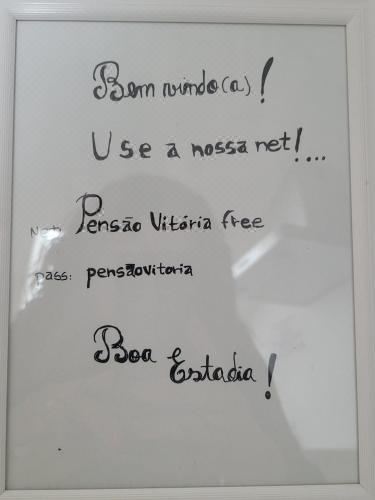 Bem vindo(a)!
Use a nossa net!...
Net: Pensão Vitória free
pass: pensãovitoria
Boa Estadia!